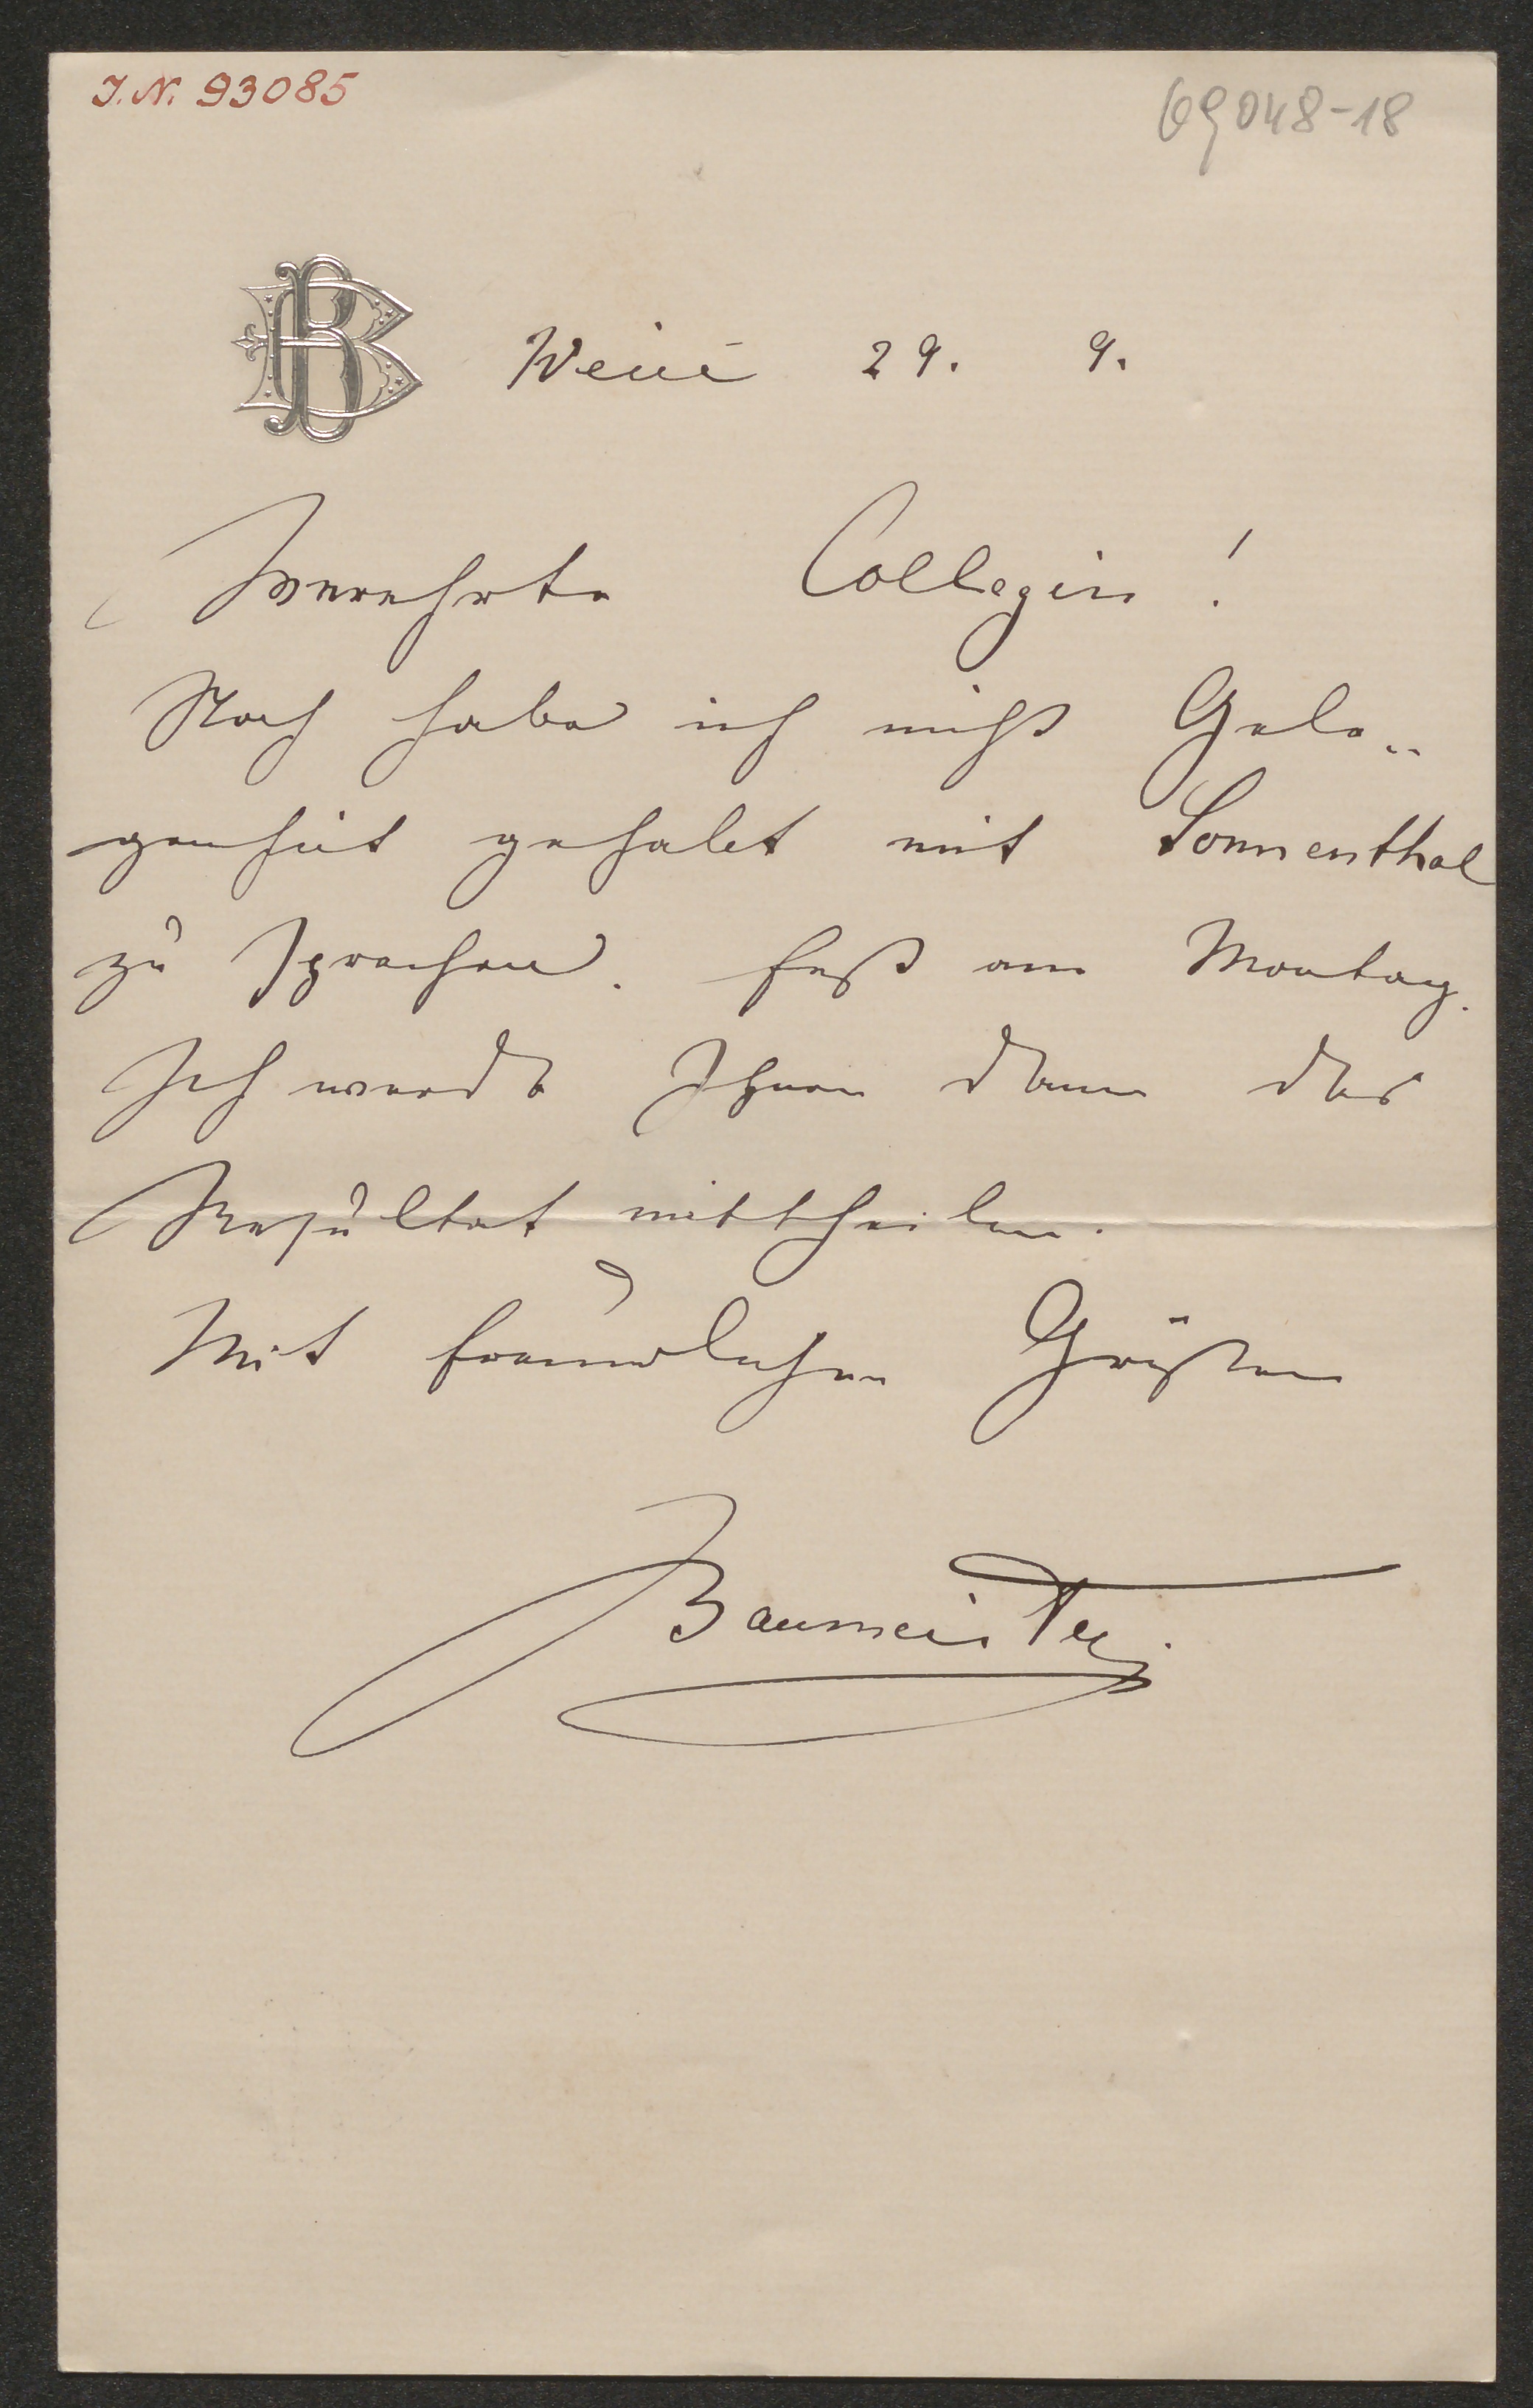 I.N. 93085
69048-18
BB
Wien 29. 9.
Verehrte Collegin!
Noch habe ich nicht Gele„
genheit gehabt mit Sonnenthal
zu sprechen. Erst am Montag.
Ich werde Ihnen dann das
Resultat mittheilen.
Mit freundlichen Grüßen
Baumeister.